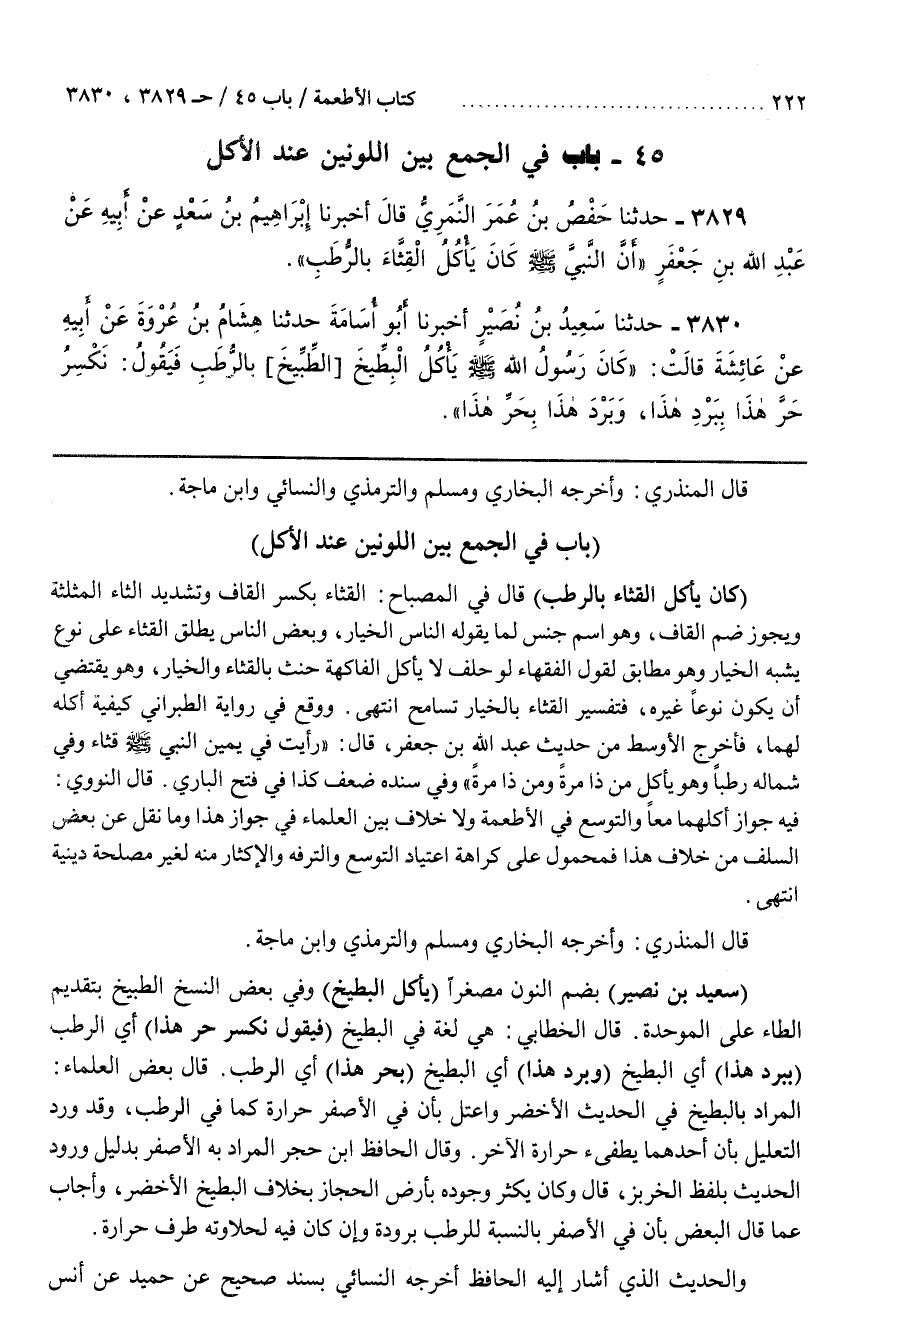 ٢٢٢ ..................................... كتاب الأطعمة / باب ٤٥ / حـ ٣٨٢٩ ، ٣٨٣٠
٤٥ ـ باب في الجمع بين اللونين عند الأكل
٣٨٢٩ ـ حدثنا حَفْصُ بنُ عُمَرَ النَّمَرِيُّ قالَ أخبرنا إبْرَاهِيمُ بنُ سَعْدٍ عنْ أَبِيهِ عَنْ
عَبْدِ الله بنِ جَعْفَرٍ «أَنَّ النَّبيَّ ﷺ كَانَ يَأْكُلُ الْقِثَّاءَ بالرُّطَبِ».
٣٨٣٠ ـ حدثنا سَعِيدُ بنُ نُصَيْرٍ أخبرنا أَبُو أُسَامَةَ حدثنا هِشَامُ بنُ عُرْوَةَ عَنْ أَبِيهِ
عنْ عَائِشَةَ قالَتْ: «كَانَ رَسُولُ الله ﷺ يَأْكُلُ الْبِطِّيخَ [الطِّبِّيخَ] بالرُّطَبِ فَيَقُولُ: نَكْسِرُ
حَرَّ هٰذَا بِبَرْدِ هٰذَا، وَبَرْدَ هٰذَا بِحَرِّ هٰذَا».
قال المنذري: وأخرجه البخاري ومسلم والترمذي والنسائي وابن ماجة.
(باب في الجمع بين اللونين عند الأكل)
(كان يأكل القثاء بالرطب) قال في المصباح: القثاء بكسر القاف وتشديد الثاء المثلثة
ويجوز ضم القاف، وهو اسم جنس لما يقوله الناس الخيار، وبعض الناس يطلق القثاء على نوع
يشبه الخيار وهو مطابق لقول الفقهاء لو حلف لا يأكل الفاكهة حنث بالقثاء والخيار، وهو يقتضي
أن يكون نوعاً غيره، فتفسير القثاء بالخيار تسامح انتهى. ووقع في رواية الطبراني كيفية أكله
لهما، فأخرج الأوسط من حديث عبد الله بن جعفر، قال: «رأيت في يمين النبي ﷺ قثاء وفي
شماله رطباً وهو يأكل من ذا مرةً ومن ذا مرةً» وفي سنده ضعف كذا في فتح الباري. قال النووي:
فيه جواز أكلهما معاً والتوسع في الأطعمة ولا خلاف بين العلماء في جواز هذا وما نقل عن بعض
السلف من خلاف هذا فمحمول على كراهة اعتياد التوسع والترفه والإكثار منه لغير مصلحة دينية
انتهى.
قال المنذري: وأخرجه البخاري ومسلم والترمذي وابن ماجة.
(سعيد بن نصير) بضم النون مصغراً (يأكل البطيخ) وفي بعض النسخ الطبيخ بتقديم
الطاء على الموحدة. قال الخطابي: هي لغة في البطيخ (فيقول نكسر حر هذا) أي الرطب
(ببرد هذا) أي البطيخ (وبرد هذا) أي البطيخ (بحر هذا) أي الرطب. قال بعض العلماء:
المراد بالبطيخ في الحديث الأخضر واعتل بأن في الأصفر حرارة كما في الرطب، وقد ورد
التعليل بأن أحدهما يطفىء حرارة الآخر. وقال الحافظ ابن حجر المراد به الأصفر بدليل ورود
الحديث بلفظ الخربز، قال وكان يكثر وجوده بأرض الحجاز بخلاف البطيخ الأخضر، وأجاب
عما قال البعض بأن في الأصفر بالنسبة للرطب برودة وإن كان فيه لحلاوته طرف حرارة.
والحديث الذي أشار إليه الحافظ أخرجه النسائي بسند صحيح عن حميد عن أنس